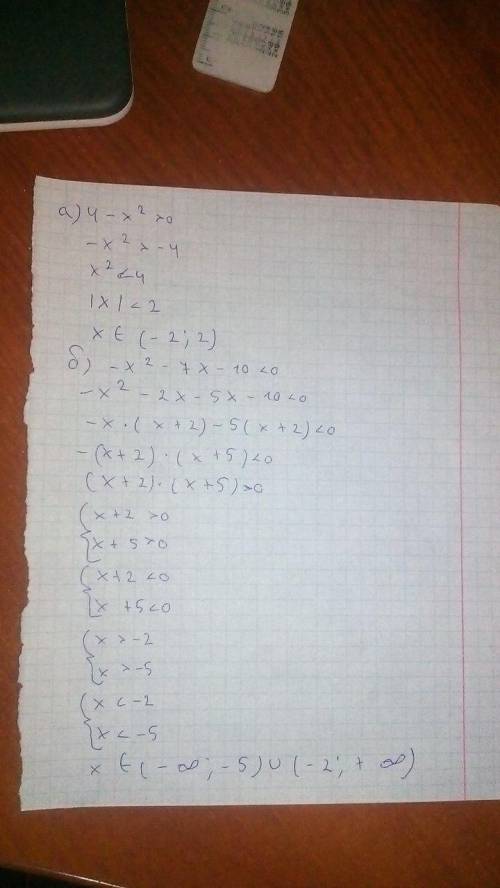 а) 4 - x² > 0
-x² > -4
x² < 4
|x| < 2
x ∈ (-2; 2)
б) -x² - 7x - 10 < 0
-x² - 2x - 5x - 10 < 0
-x · (x + 2) - 5(x + 2) < 0
-(x + 2) · (x + 5) < 0
(x + 2) · (x + 5) > 0
{ x + 2 > 0
{ x + 5 > 0
{ x + 2 < 0
{ x + 5 < 0
{ x > -2
{ x > -5
{ x < -2
{ x < -5
x ∈ (-∞; -5) ∪ (-2; +∞)